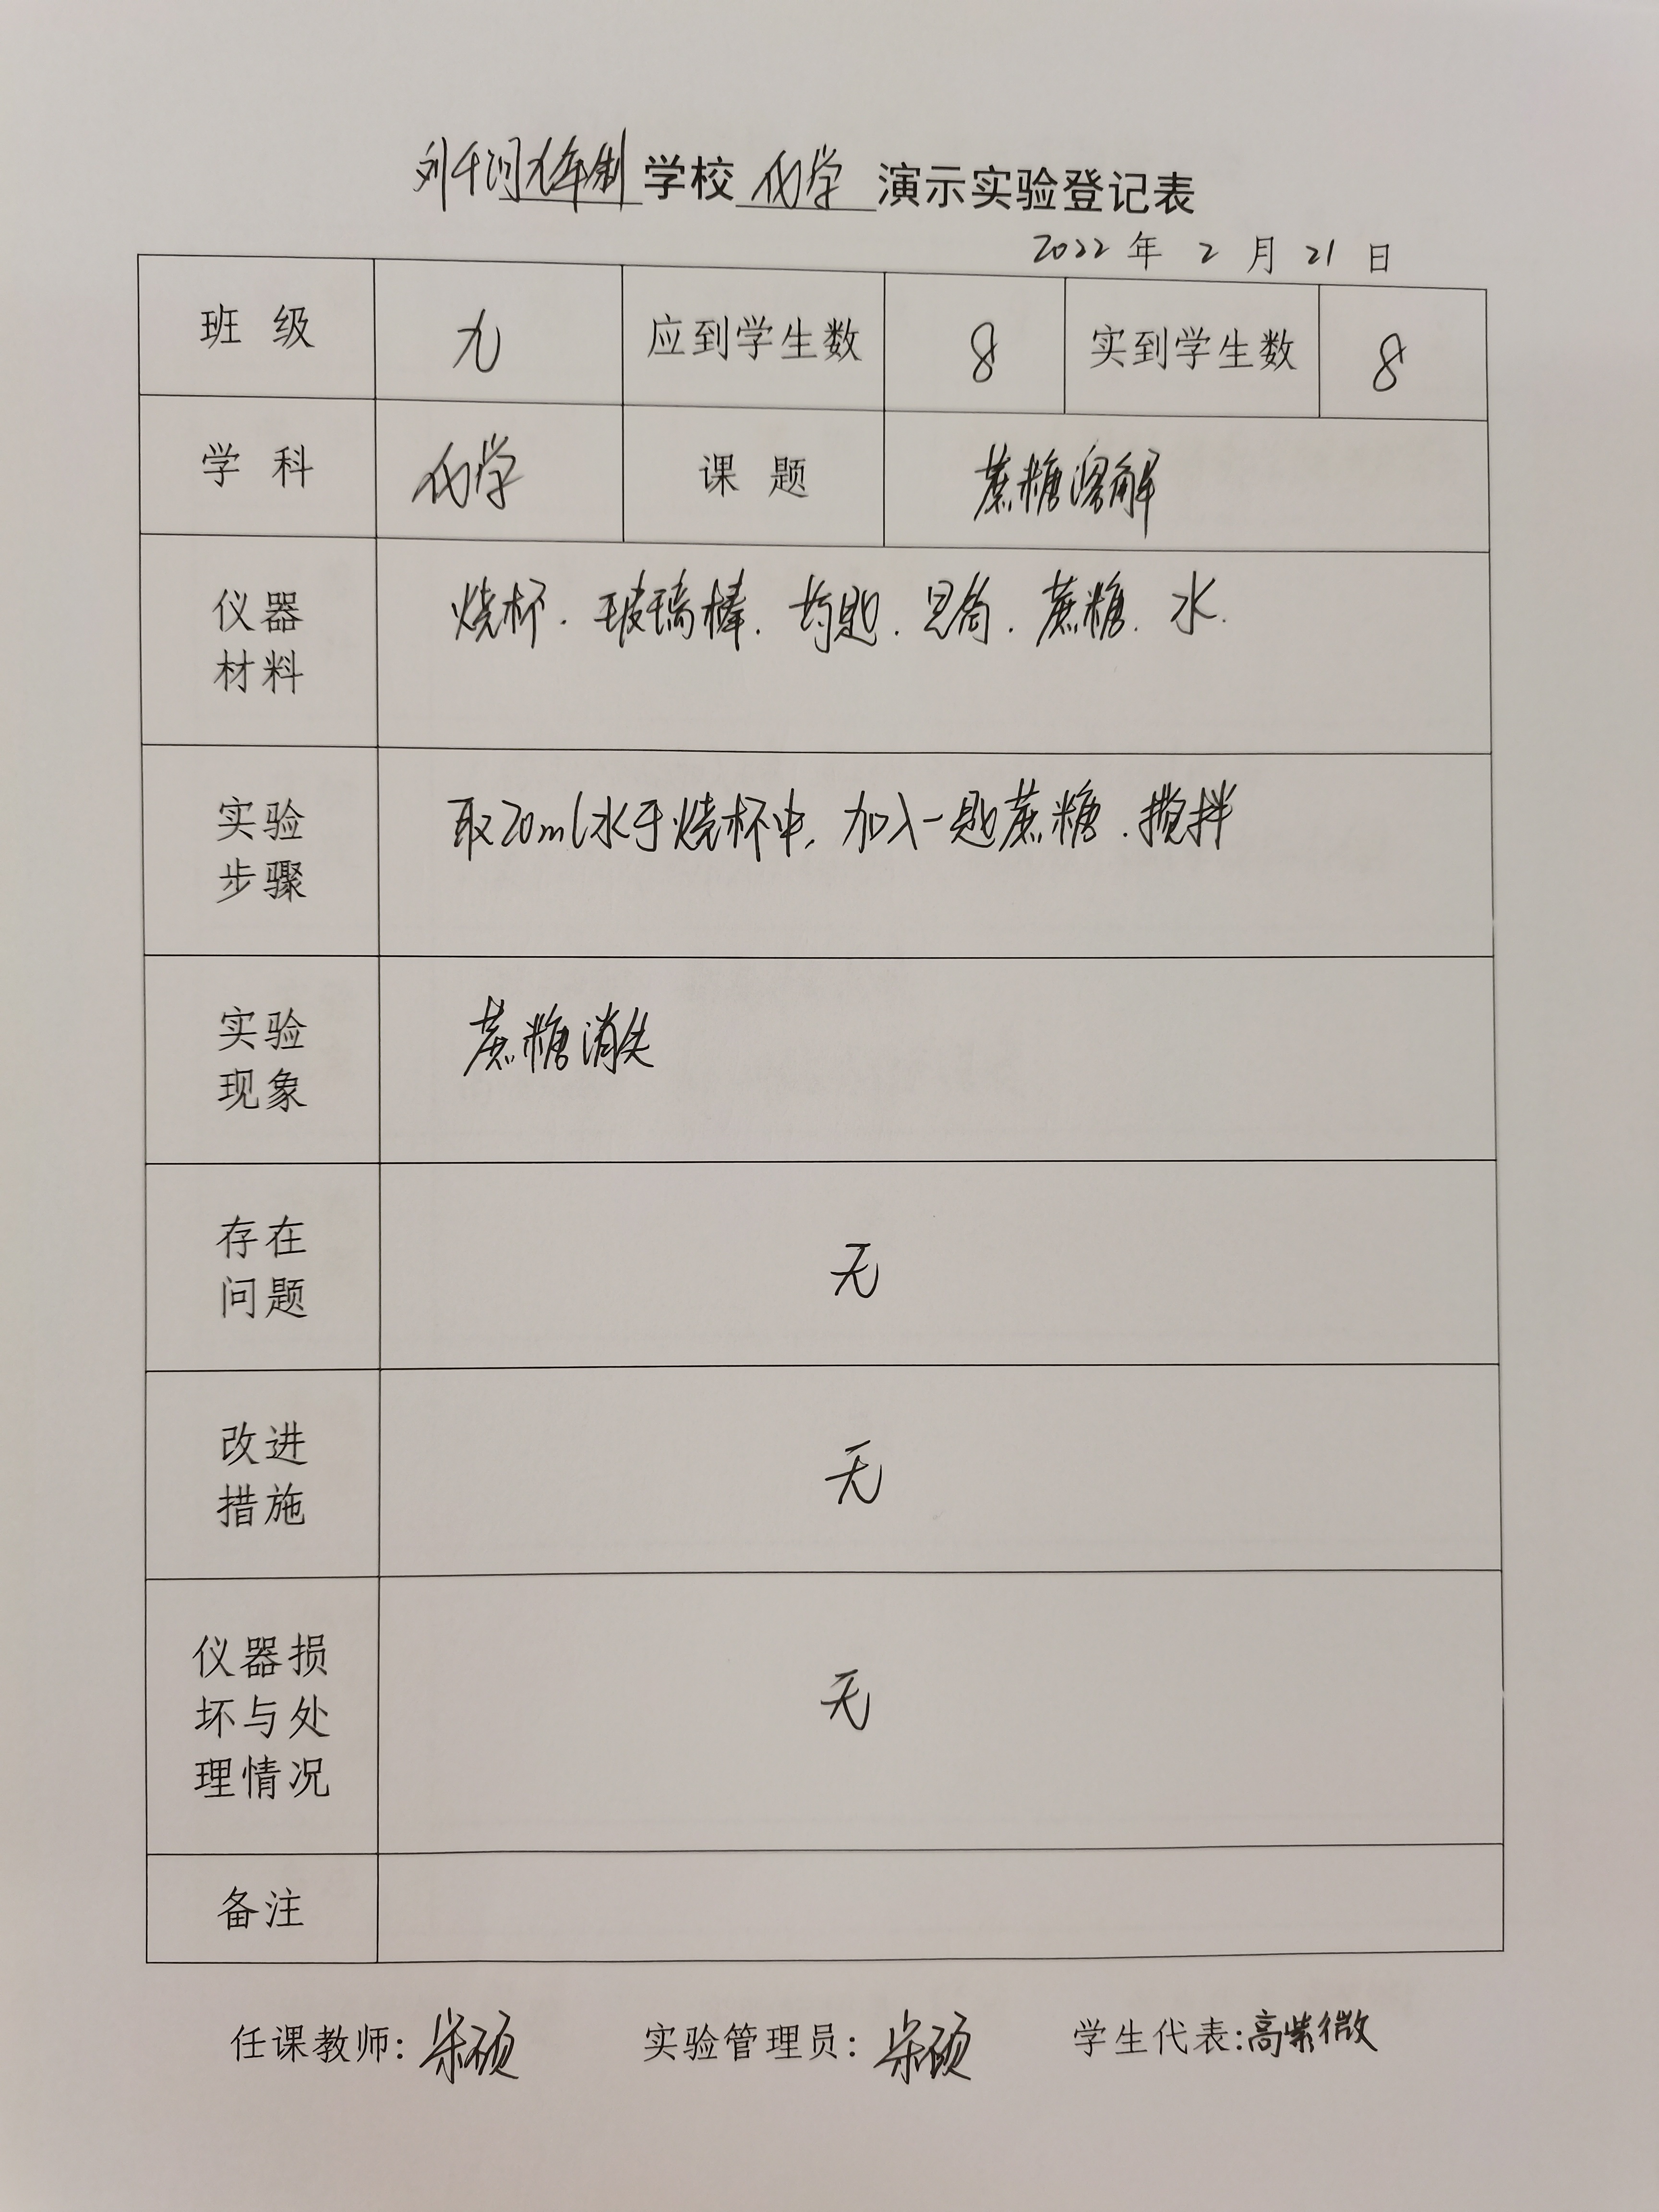 刘千河九年制学校化学演示实验登记表
2022年2月21日
班级 九 应到学生数 8 实到学生数 8
学科 化学 课题 蔗糖溶解
仪器 烧杯.玻璃棒.药匙.量筒.蔗糖.水.
材料
实验 取20ml水于烧杯中,加入一匙蔗糖.搅拌
步骤
实验 蔗糖消失
现象
存在 无
问题
改进 无
措施
仪器损
坏与处 无
理情况
备注
任课教师: 硕 实验管理员: 硕 学生代表:高紫微